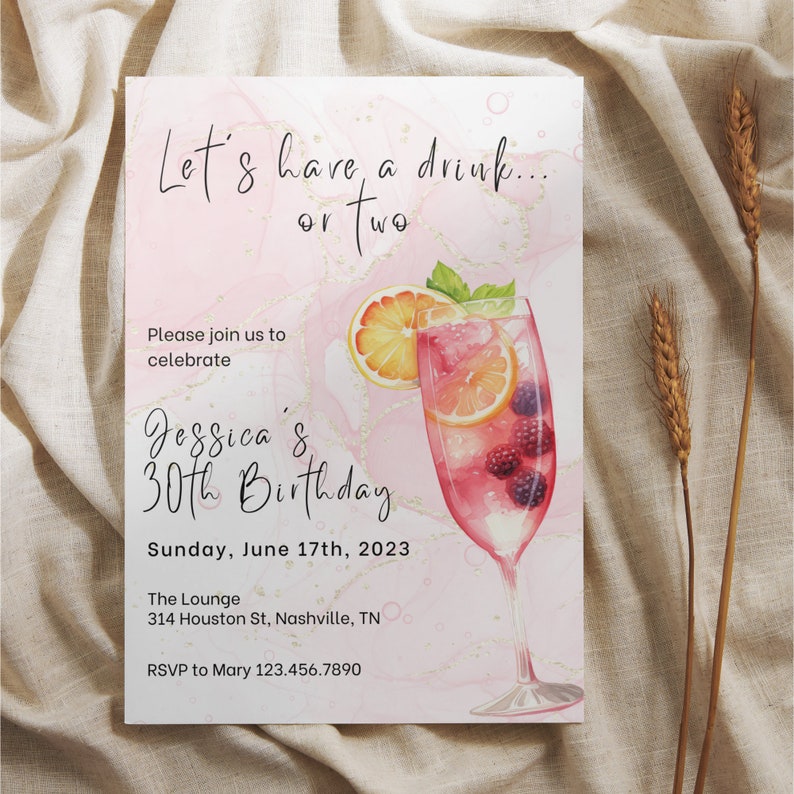 Let's have a drink...
or two
Please join us to
celebrate
Jessica's
30th Birthday
Sunday, June 17th, 2023
The Lounge
314 Houston St, Nashville, TN
RSVP to Mary 123.456.7890